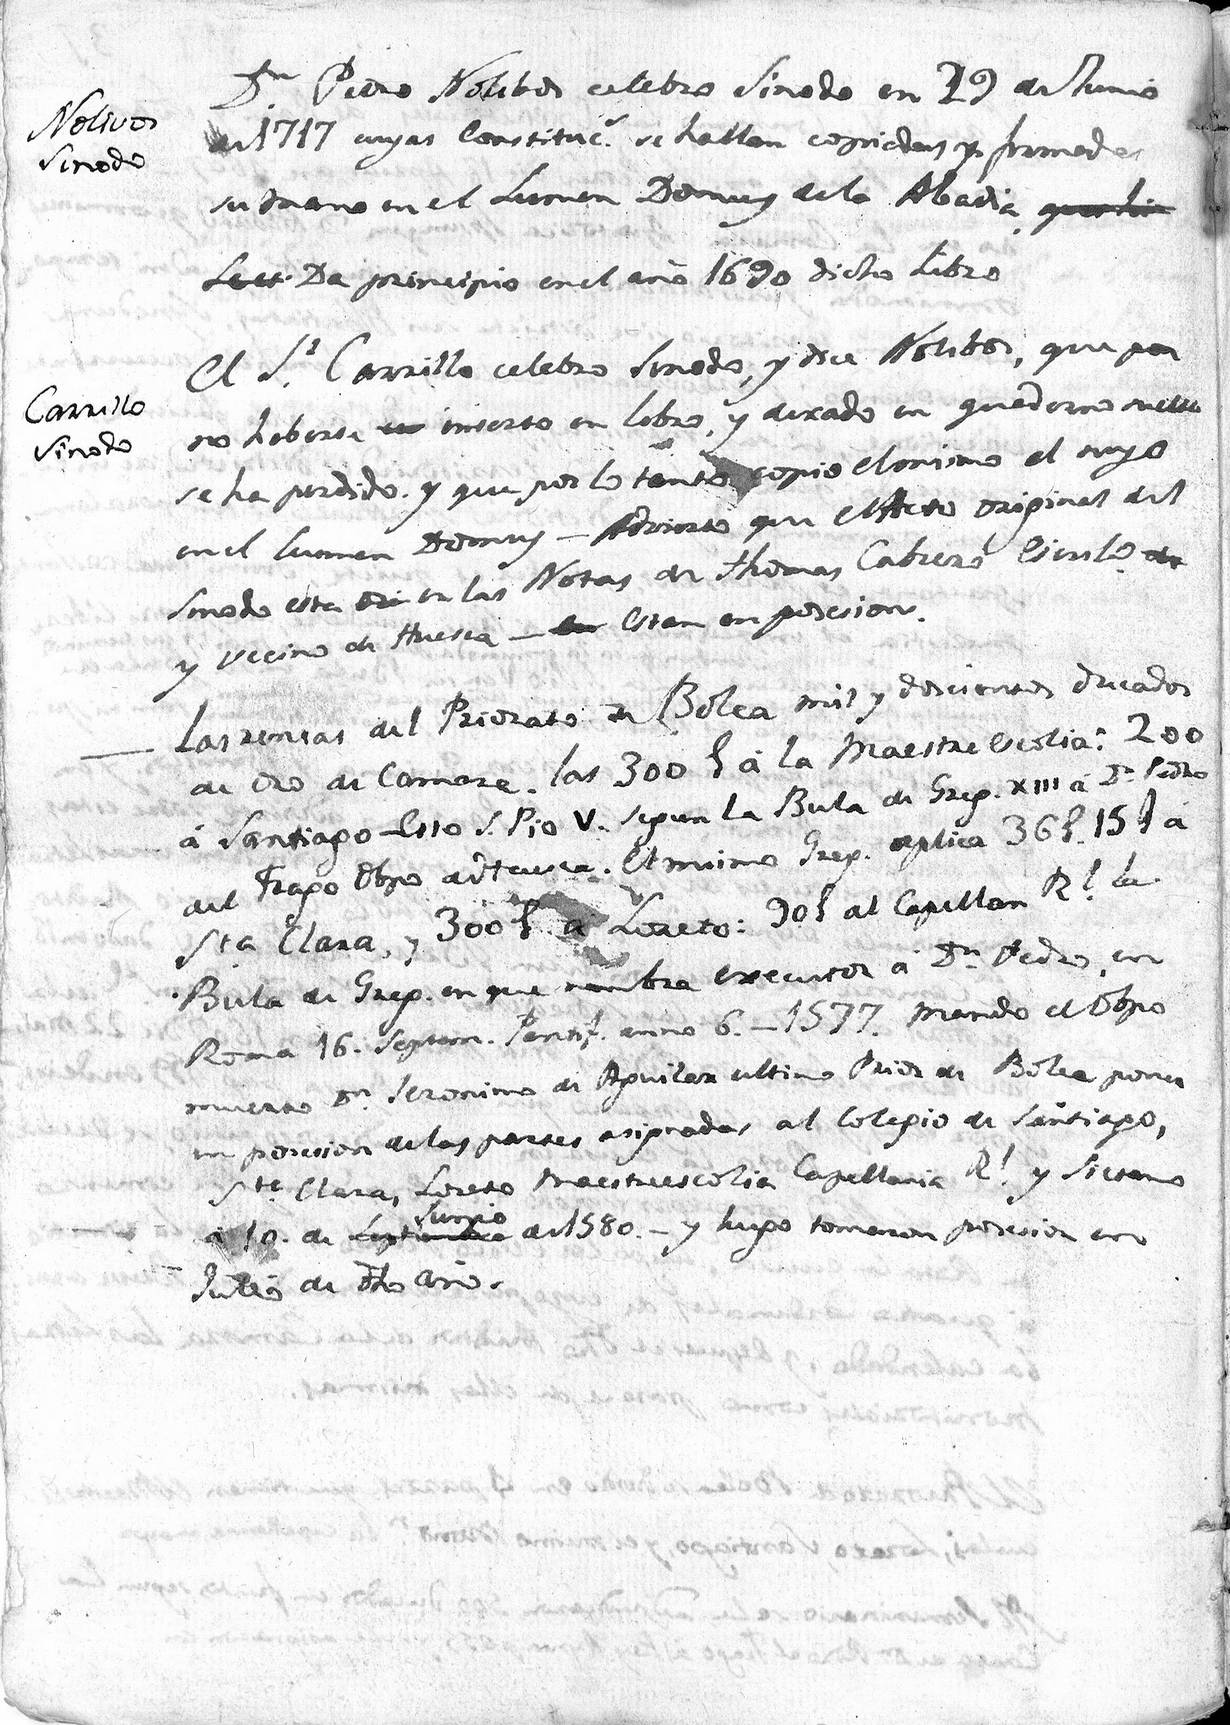 Dn Pedro Nolibos celebro Sinodo en 29 de Junio
Nolivos
Sinodo
de 1717 cuyas Constituc.s se hallan copiadas y firmadas
su mano en el Lumen Domus de la Abadia,
Da principio en el año 1690 dicho Libro
El S.r Carrillo celebro Sinodo, y dice Nolibos, que por
Carrillo
Sinodo
no haberse inserto en libro, y dexado en quaderno suelto
se ha perdido. y que por lo tanto copio el mismo el suyo
en el Lumen Domus — Advierto que el Acto original del
Sinodo esta en las Notas de Thomas Cabrero Escrib.o
y vecino de Huesca — Estan en posesion.
Las rentas del Priorato de Bolea mil y doscientos ducados
de oro de Camara. las 300 à la Maestre escolia: 200
à Santiago — Esto S. Pio V. segun la Bula de Greg. XIII à Dn Pedro
del Frago Obpo de Huesca. El mismo Greg. aplica 36 15 à
Sta Clara, y 300 à Loreto: 90 al Capellan Rl la
Bula de Greg. en que nombra executor à Dn Pedro, en
Roma 16. Septem. Pontif. anno 6. — 1577. Mando el Obpo
muerto Dn Jeronimo de Aguilar ultimo Prior de Bolea poner
en posesion de las partes asignadas al Colegio de Santiago,
Sta Clara, Loreto Maestreescolia Capellania Rl y Sietamo
Junio
à 10. de Septiembre de 1580. — y luego tomaron posesion en
Julio de dho año.